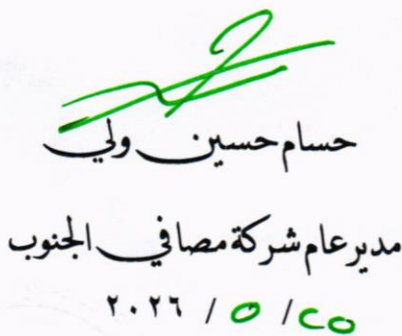 حسام حسين ولي
مدير عام شركة مصافي الجنوب
٢٥ / ٥ / ٢٠٢٦